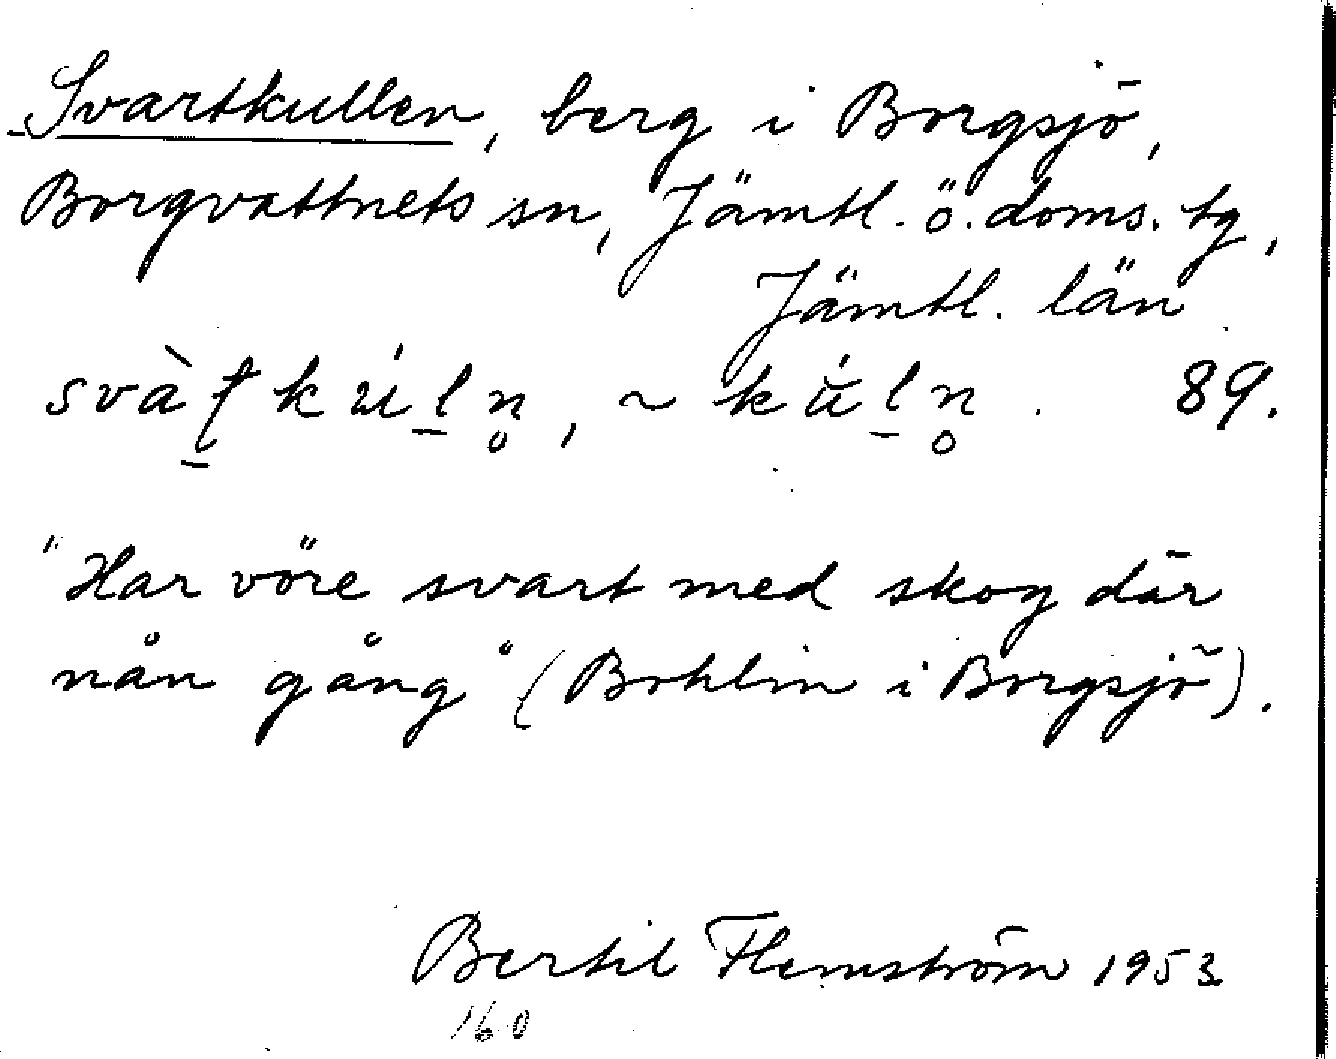 Svartkullen, berg i Borgsjö,
Borgvattnets sn, Jämtl. ö. doms. tg,
Jämtl. län
svàʈkúl̠n̥, ~ kúl̠n̥. 89.
"Har vöre svart med skog där
nån gång" (Bohlin i Borgsjö).
Bertil Flemström 1953
160